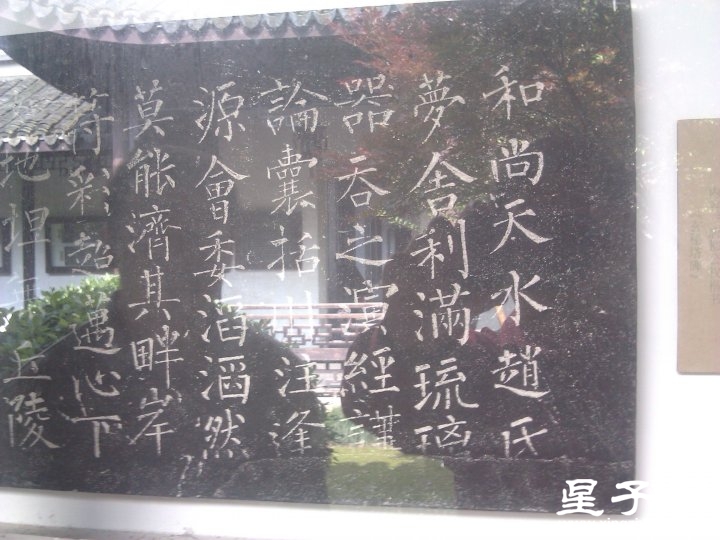 和尚天水趙氏
夢舍利滿琉璃
器吞之演經講
論囊括川注逢
源會委滔滔然
莫能濟其畔岸
符彩超邁心下
地坦丘陵
星子